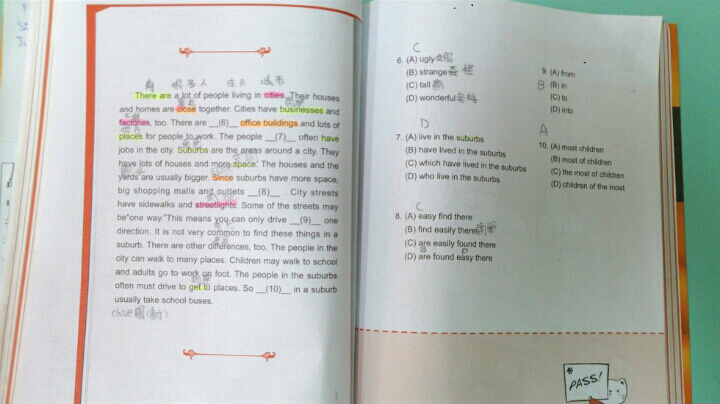 有 很多人 住在 城市
There are a lot of people living in cities. Their houses
and homes are close together. Cities have businesses and
factories, too. There are __(6)__ office buildings and lots of
places for people to work. The people __(7)__ often have
jobs in the city. Suburbs are the areas around a city. They
have lots of houses and more space. The houses and the
yards are usually bigger. Since suburbs have more space,
big shopping malls and outlets __(8)__ . City streets
have sidewalks and streetlights. Some of the streets may
be"one way."This means you can only drive __(9)__ one
direction. It is not very common to find these things in a
suburb. There are other differences, too. The people in the
city can walk to many places. Children may walk to school
and adults go to work on foot. The people in the suburbs
often must drive to get to places. So __(10)__ in a suburb
usually take school buses.
close
C
6. (A) ugly
(B) strange 奇怪
(C) tall 高
(D) wonderful
D
7. (A) live in the suburbs
(B) have lived in the suburbs
(C) which have lived in the suburbs
(D) who live in the suburbs
C
8. (A) easy find there
(B) find easily there
(C) are easily found there
(D) are found easy there
9. (A) from
B (B) in
(C) to
(D) into
A
10. (A) most children
(B) most of children
(C) the most of children
(D) children of the most
PASS!